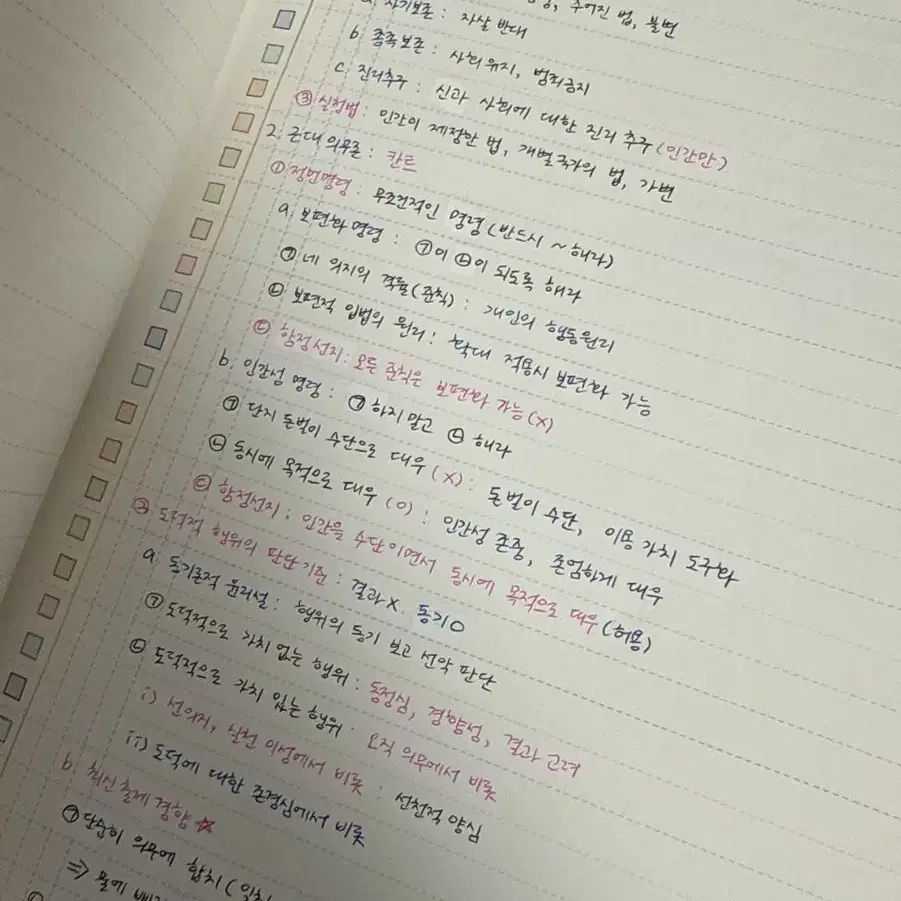 주어진 법, 불변
a. 자기보존 : 자살 반대
b. 종족보존 : 사회 유지, 범죄금지
c. 진리추구 : 신과 사회에 대한 진리 추구 (인간만)
③ 실정법 : 인간이 제정한 법, 개별국가의 법, 가변
2. 근대 의무론 : 칸트
① 정언명령 : 무조건적인 명령 (반드시 ~해라)
a. 보편화 명령 : ㉠이 ㉡이 되도록 해라
㉠ 네 의지의 격률(준칙) : 개인의 행동원리
㉡ 보편적 입법의 원리 : 확대 적용시 보편화 가능
㉢ 함정선지 : 모든 준칙은 보편화 가능 (X)
b. 인간성 명령 : ㉠ 하지말고 ㉡ 해라
㉠ 단지 돈벌이 수단으로 대우 (X) : 돈벌이 수단, 이용 가치 도구화
㉡ 동시에 목적으로 대우 (O) : 인간성 존중, 존엄하게 대우
㉢ 함정선지 : 인간을 수단이면서 동시에 목적으로 대우 (허용)
② 도덕적 행위의 판단기준 : 결과X 동기O
a. 동기론적 윤리설 : 행위의 동기 보고 선악 판단
㉠ 도덕적으로 가치 없는 행위 : 동정심, 경향성, 결과 고려
㉡ 도덕적으로 가치 있는 행위 : 오직 의무에서 비롯
i) 선의지, 실천 이성에서 비롯 : 선천적 양심
ii) 도덕에 대한 존경심에서 비롯
b. 최신 출제 경향 ☆
㉠ 단순히 의무에 합치 (일치